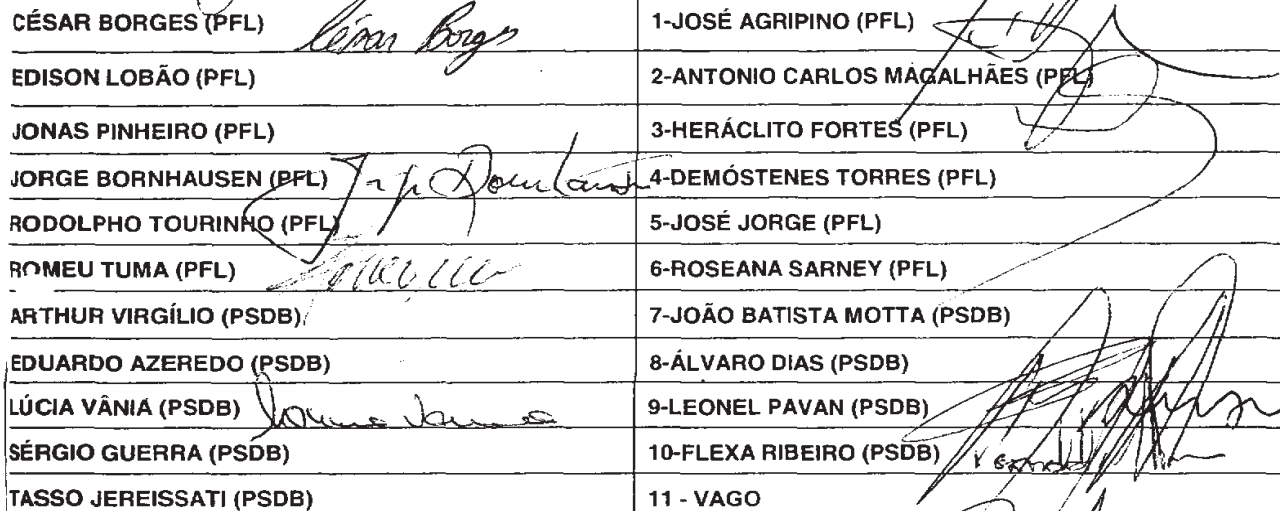 CÉSAR BORGES (PFL) César Borges 1-JOSÉ AGRIPINO (PFL)
EDISON LOBÃO (PFL) 2-ANTONIO CARLOS MAGALHÃES (PFL)
JONAS PINHEIRO (PFL) 3-HERÁCLITO FORTES (PFL)
JORGE BORNHAUSEN (PFL) 4-DEMÓSTENES TORRES (PFL)
RODOLPHO TOURINHO (PFL) 5-JOSÉ JORGE (PFL)
ROMEU TUMA (PFL) 6-ROSEANA SARNEY (PFL)
ARTHUR VIRGÍLIO (PSDB) 7-JOÃO BATISTA MOTTA (PSDB)
EDUARDO AZEREDO (PSDB) 8-ÁLVARO DIAS (PSDB)
LÚCIA VÂNIA (PSDB) 9-LEONEL PAVAN (PSDB)
SÉRGIO GUERRA (PSDB) 10-FLEXA RIBEIRO (PSDB)
TASSO JEREISSATI (PSDB) 11 - VAGO